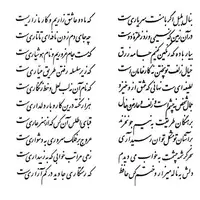 بنال بلبل اگر با منت سر یاریست
که ما دو عاشق زاریم و کار ما زاریست
در آن زمین که نسیمی وزد ز طره دوست
چه جای دم زدن نافه‌های تاتاریست
بیار باده که رنگین کنیم جامه زرق
که مست جام غروریم و نام هشیاریست
خیال زلف تو پختن نه کار هر خامیست
که زیر سلسله رفتن طریق عیاریست
لطیفه‌ایست نهانی که عشق از او خیزد
که نام آن نه لب لعل و خط زنگاریست
جمال شخص نه چشم است و زلف و عارض و خال
هزار نکته در این کار و بار دلداریست
قلندران حقیقت به نیم جو نخرند
قبای اطلس آن کس که از هنر عاریست
بر آستان تو مشکل توان رسید آری
عروج بر فلک سروری به دشواریست
سحر کرشمه چشمت به خواب می‌دیدم
زهی مراتب خوابی که به ز بیداریست
دلش به ناله میازار و ختم کن حافظ
که رستگاری جاوید در کم آزاریست